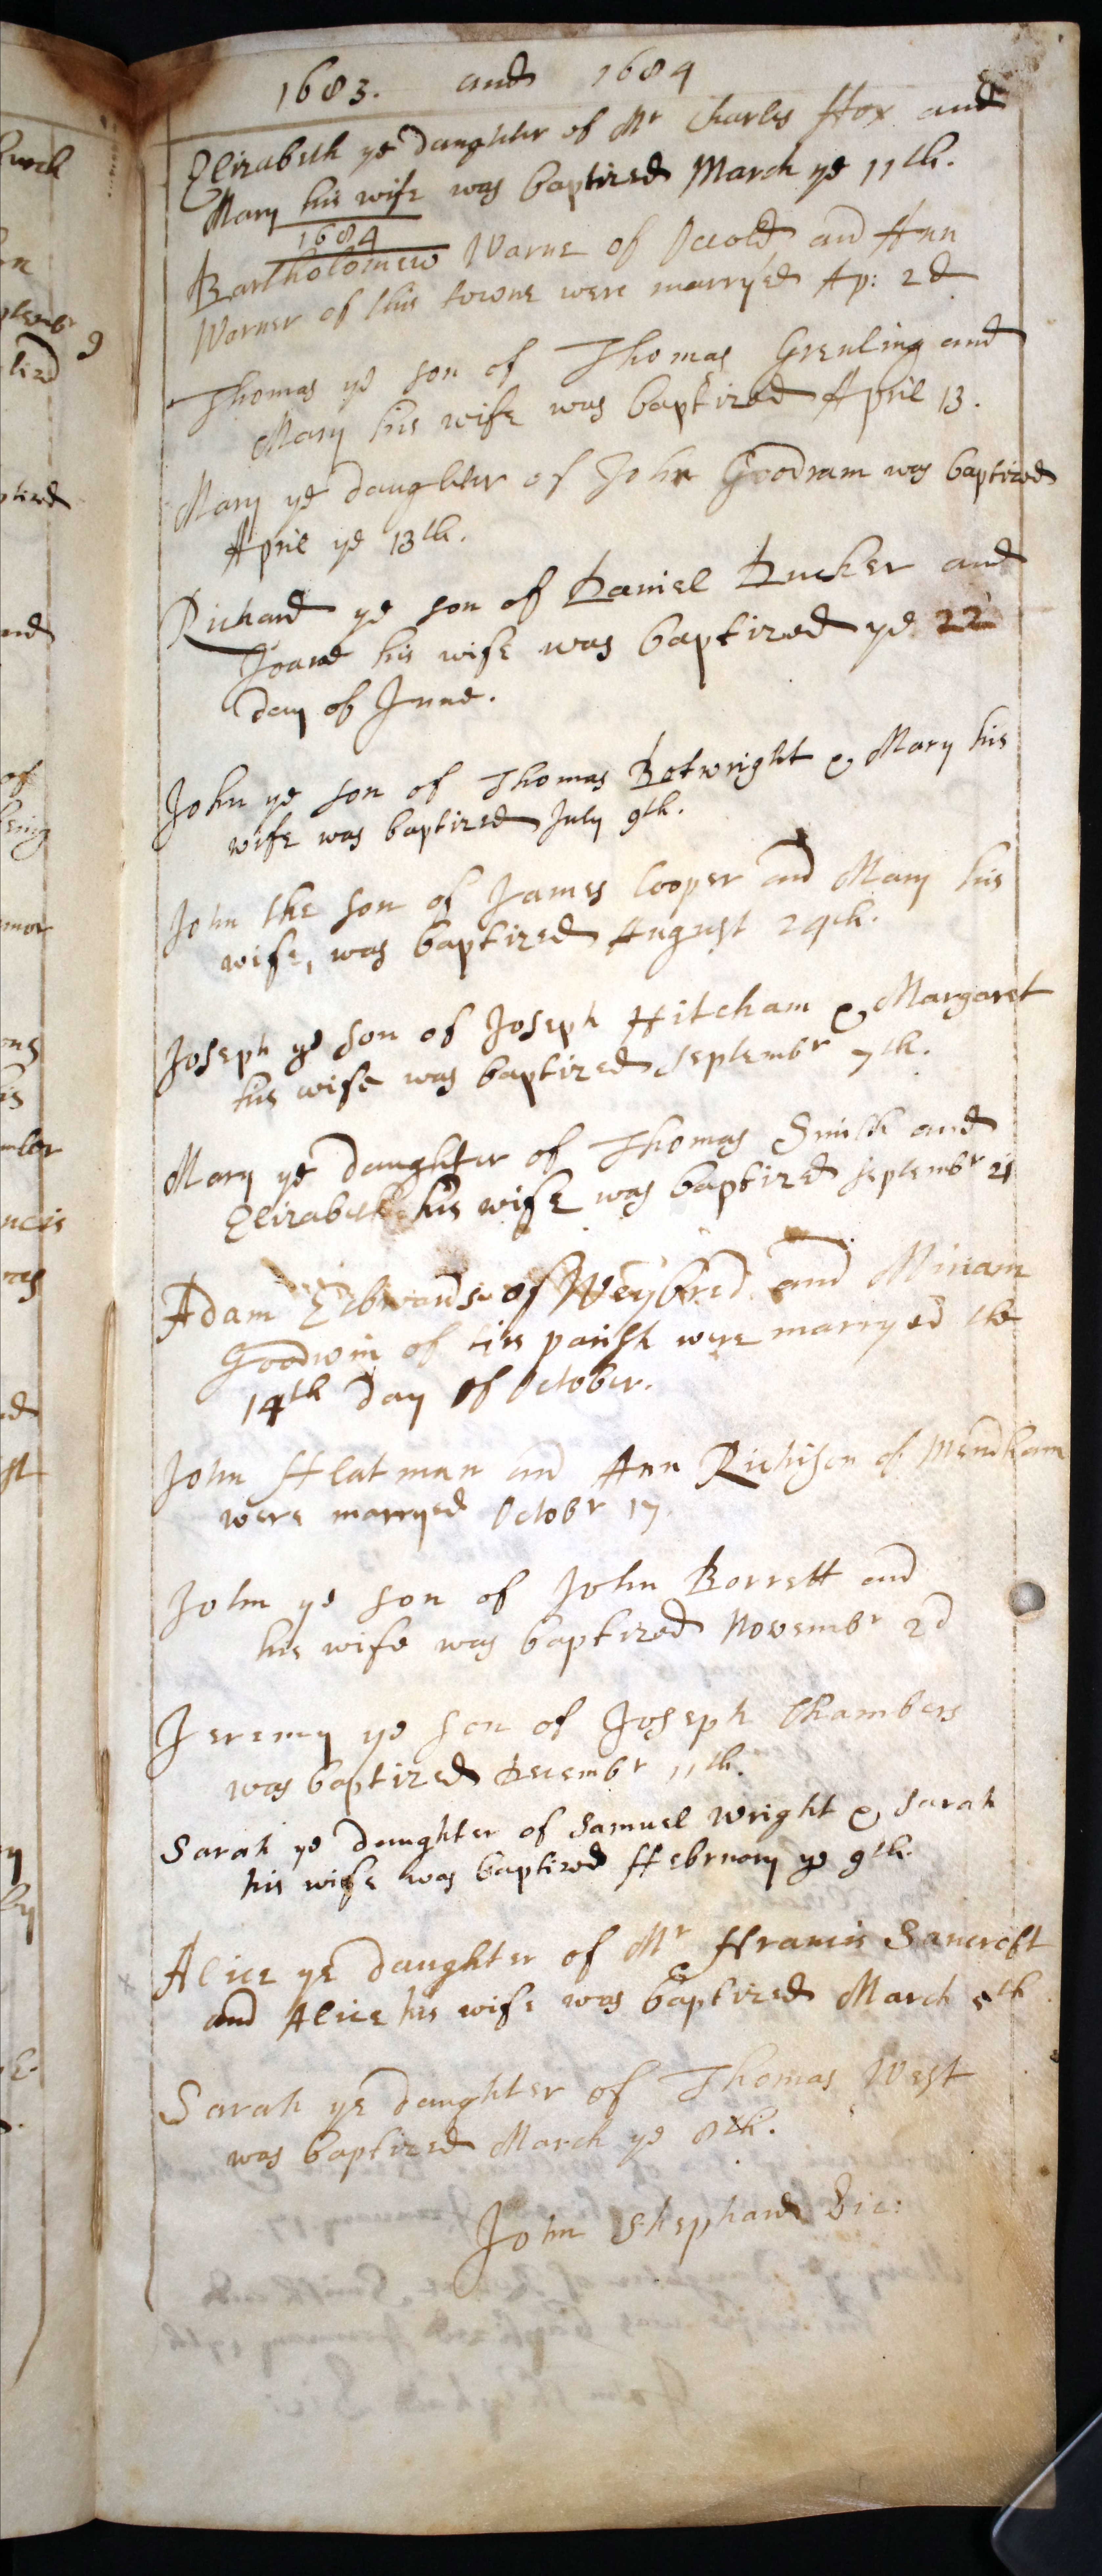 1683. and 1684
Elizabeth ye daughter of Mr Charles ffox and
Mary his wife was baptized March ye 11th.
1684
Bartholomew Warne of Occold and Ann
Warner of this towne were marryed Ap: 2d
Thomas ye son of Thomas Grenling and
Mary his wife was baptized April 13.
Mary ye daughter of John Goodram was baptized
April ye 13th.
Richard ye son of Daniel Bucker and
Joane his wife was baptized ye 22
day of June.
John ye son of Thomas Botwright & Mary his
wife was baptized July 9th.
John the son of James Cooper and Mary his
wife, was baptized August 24th.
Joseph ye son of Joseph Hitcham & Margaret
his wife was baptized Septembr 7th.
Mary ye daughter of Thomas Smith and
Elizabeth his wife was baptized Septembr 21
Adam of Weybred and Miriam
Goodwin of this parish were marryed the
14th day of October.
John fflatman and Ann Richison of Mendham
were marryed Octobr 17.
John ye son of John Borrett and
his wife was baptized Novembr 2d
Jeremy ye son of Joseph Chambers
was baptized Decembr 11th.
Sarah ye daughter of Samuel Wright & Sarah
his wife was baptized ffebruary ye 9th.
Alice ye daughter of Mr ffrancis Sancroft
and Alice his wife was baptized March 5th.
Sarah ye daughter of Thomas West
was baptized March ye 8th.
John Shephard Vic: